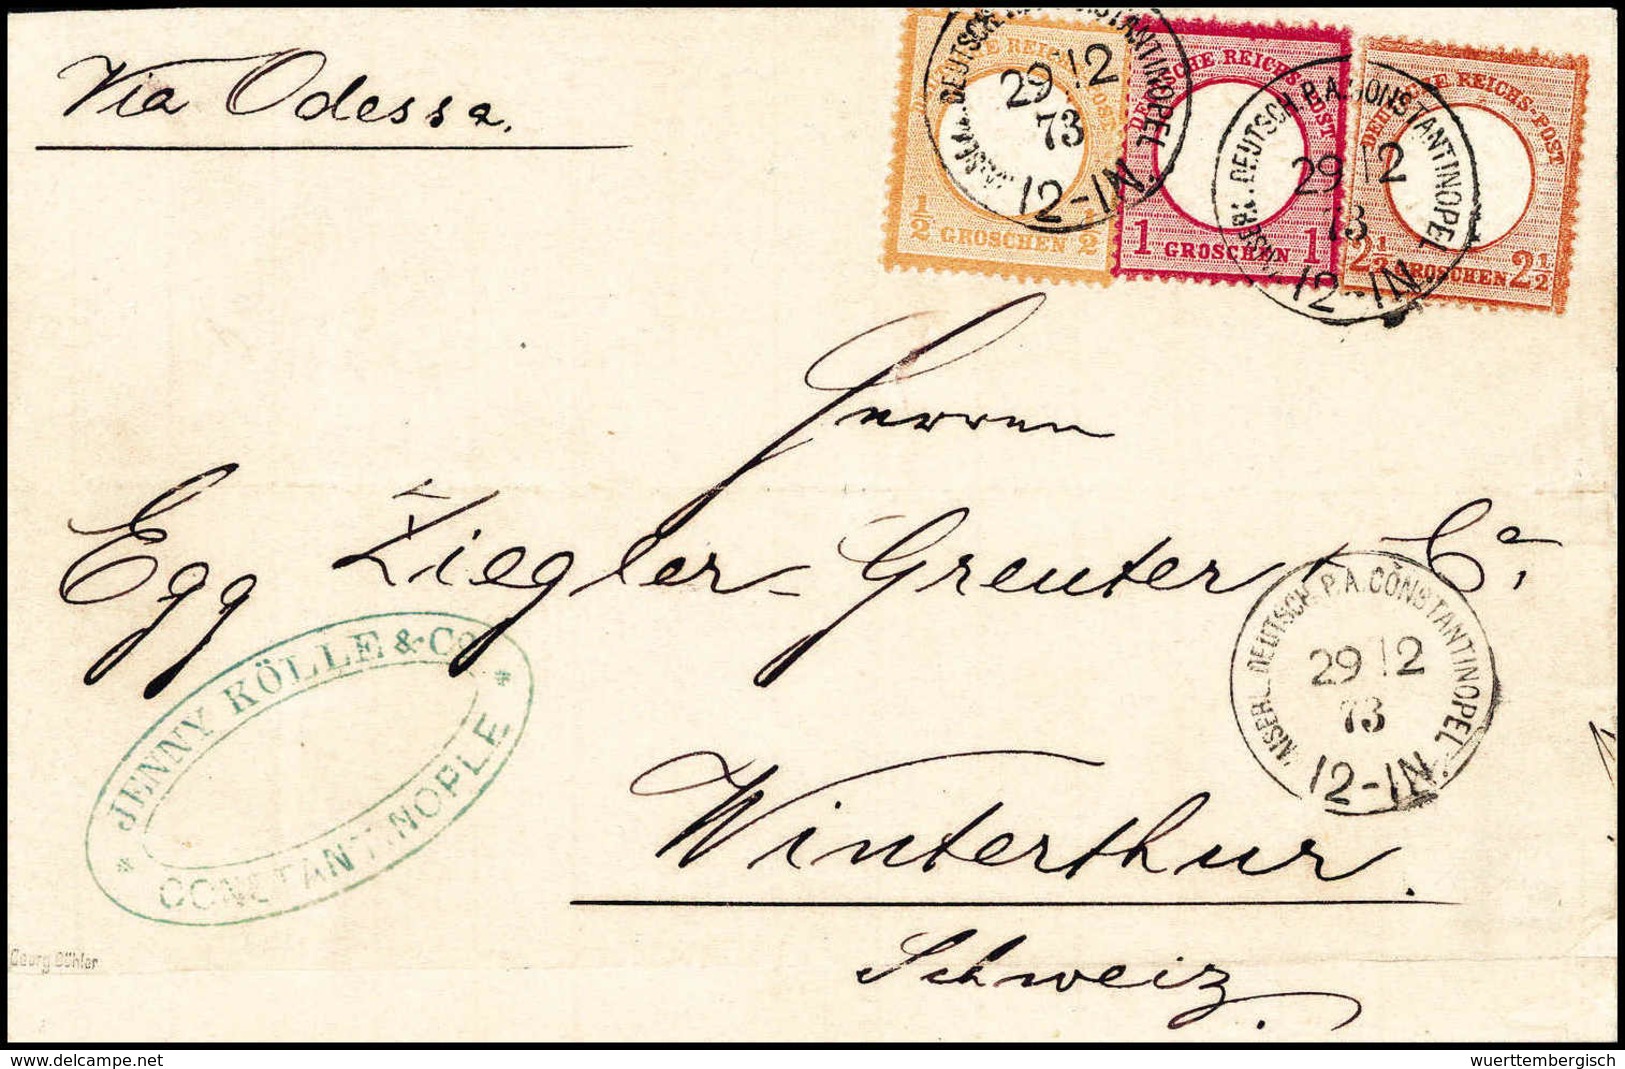 Via Odessa.
DEUTSCHE REICHS-POST
½ GROSCHEN ½
DEUTSCHE REICHS-POST
1 GROSCHEN 1
DEUTSCHE REICHS-POST
2½ GROSCHEN 2½
KAISERL. DEUTSCH. P.A. CONSTANTINOPEL
29 12
73
12-1N.
KAISERL. DEUTSCH. P.A. CONSTANTINOPEL
29 12
73
12-1N.
Herren
Egg Ziegler-Greuter & Ce.
JENNY KÖLLE & Co.
* CONSTANTINOPLE *
KAISERL. DEUTSCH. P.A. CONSTANTINOPEL
29 12
73
12-1N.
Winterthur.
Schweiz.
Georg Bühler
delcampe.net
wuerttembergisch